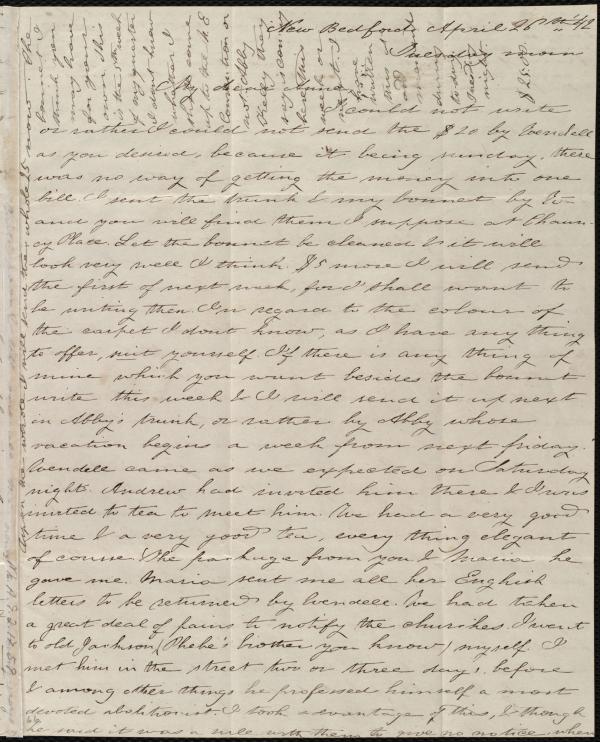 New Bedford, April 26th /42
Tuesday morn
My dear Anne
I could not write
or rather I could not send the $20 by Wendell
as you desired, because it being sunday, there
was no way of getting the money into one
bill. I sent the trunk & my bonnet by Ex-
and you will find them I suppose at Chaun-
cy Place. Let the bonnet be cleaned & it will
look very well I think. $5 more I will send
the first of next week, for I shall want to
be writing then. In regard to the colour of
the carpet I dont know, as I have any thing
to offer, suit yourself. If there is any thing of
mine which you want besides the bonnet
write this week & I will send it up next
in Abby's trunk, or rather by Abby whose
vacation begins a week from next friday.
Wendell came as we expected on Saturday
night. Andrew had invited him there & I was
invited to tea to meet him. We had a very good
time & a very good tea, every thing elegant
of course. The package from you & Maria he
gave me. Maria sent me all her English
letters to be returned by Wendell. We had taken
a great deal of pains to notify the churches. I went
to old Jackson, (Phebe's brother you know) myself. I
met him in the street two or three days before
& among other things he professed himself a most
devoted abolitionist. I took advantage of this, & though
he said it was a rule with them to give no notice when
think you
may have
for your
own. This
is the 5th week
of my quarter
I dont know
whether I
shall come
up to the N E
Convention or
not. Abby
Kelley they
say is coming
here this
week or
next.
I have
written
this in
a great
during
to day
Tuesday
night.
$25.00.